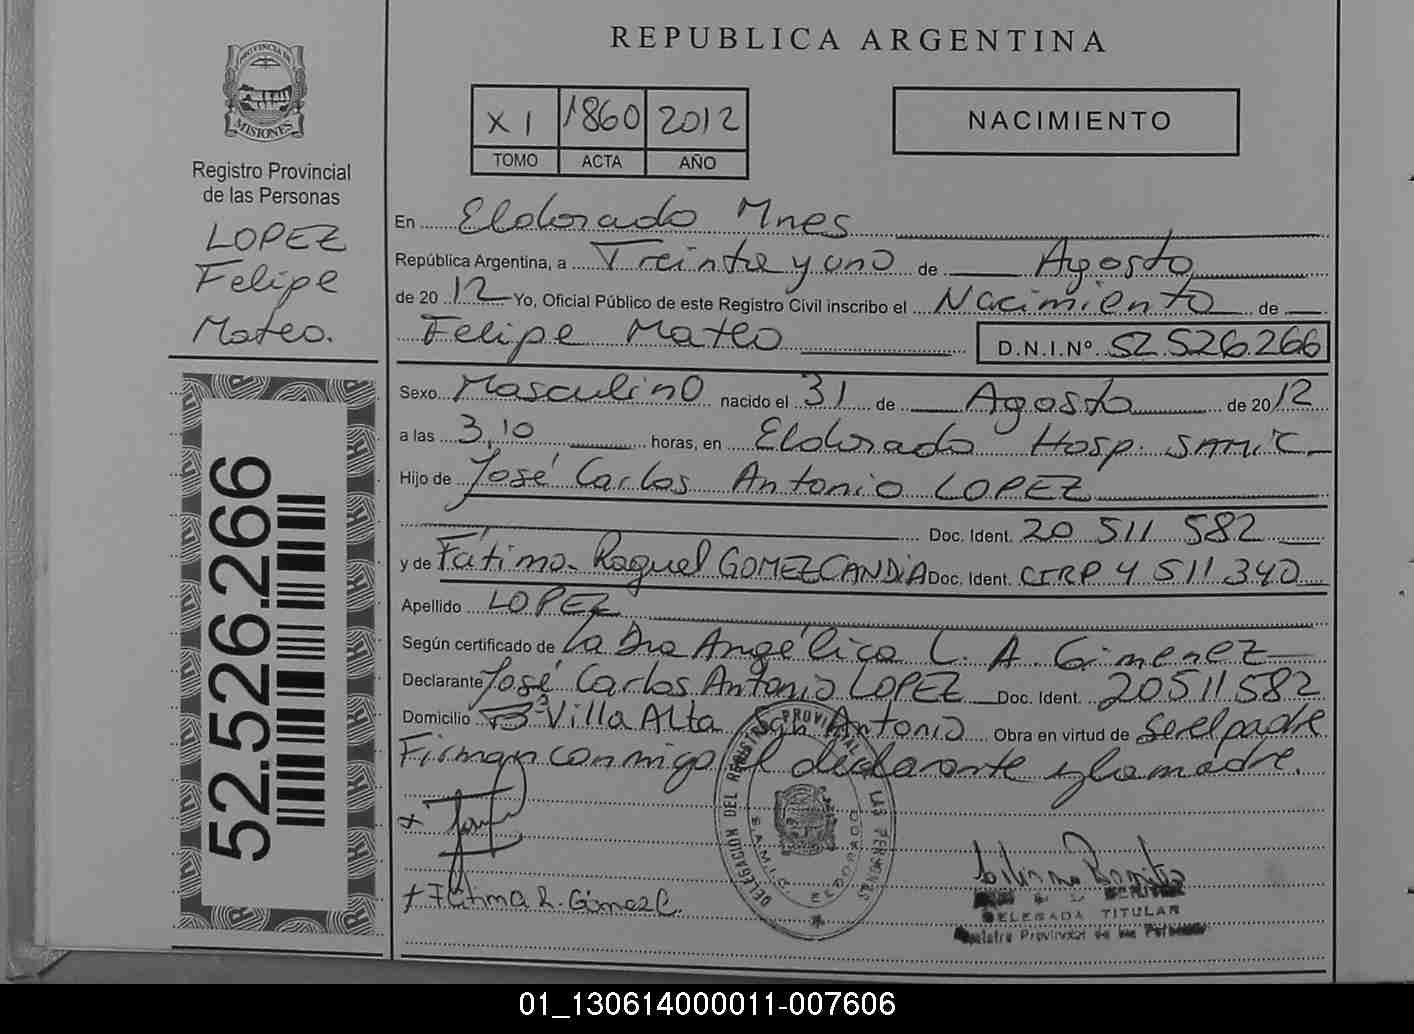 REPUBLICA ARGENTINA
PROVINCIA DE
MISIONES
Registro Provincial
de las Personas
LOPEZ
Felipe
Mateo.
52.526.266
XI 1860 2012
TOMO ACTA AÑO
NACIMIENTO
En Eldorado Mnes
República Argentina, a Treinta y uno de Agosto
de 2012 Yo, Oficial Público de este Registro Civil inscribo el Nacimiento de
Felipe Mateo D.N.I.Nº 52.526.266
Sexo Masculino nacido el 31 de Agosto de 2012
a las 3,10 horas, en Eldorado Hosp. SAMIC
Hijo de José Carlos Antonio LOPEZ
Doc. Ident. 20 511 582
y de Fátima Raquel GOMEZ CANDIA Doc. Ident. CIRP 4 511 340
Apellido LOPEZ
Según certificado de La Dra Angélica L. A Gimenez
Declarante José Carlos Antonio LOPEZ Doc. Ident. 20511582
Domicilio Bº Villa Alta San Antonio Obra en virtud de ser el padre
Firman conmigo el declarante y la madre.
DELEGACION DEL REGISTRO PROVINCIAL LAS PERSONAS
S.A.M.I.C. ELDORADO
+ Fátima R. Gómez C.
DELEGADA TITULAR
Registro Provincial de las Personas
01_130614000011-007606